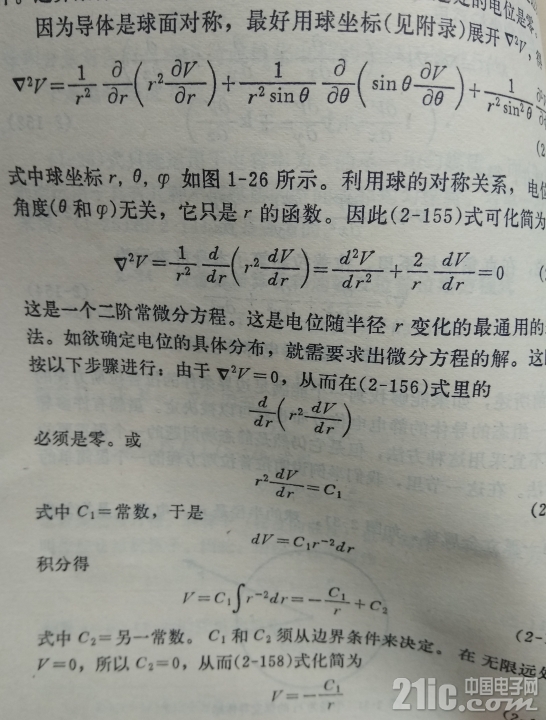 的电位是零。
因为导体是球面对称，最好用球坐标(见附录)展开∇²V，得
∇²V=1/r² ∂/∂r(r² ∂V/∂r)+1/(r² sin θ) ∂/∂θ(sin θ ∂V/∂θ)+1/(r² sin² θ)
(2
式中球坐标 r, θ, φ 如图 1-26 所示。利用球的对称关系，电位
角度(θ 和 φ)无关，它只是 r 的函数。因此(2-155)式可化简为
∇²V=1/r² d/dr(r² dV/dr)=d²V/dr²+2/r dV/dr=0
这是一个二阶常微分方程。这是电位随半径 r 变化的最通用的
法。如欲确定电位的具体分布，就需要求出微分方程的解。这
按以下步骤进行：由于 ∇²V=0，从而在(2-156)式里的
d/dr(r² dV/dr)
必须是零。或
r² dV/dr=C₁
(2
式中 C₁=常数，于是
dV=C₁r⁻²dr
积分得
V=C₁∫r⁻²dr=-C₁/r+C₂
(2-
式中 C₂=另一常数。C₁ 和 C₂ 须从边界条件来决定。在无限远处
V=0，所以 C₂=0，从而(2-158)式化简为
V=-C₁/r
21ic.com 中国电子网